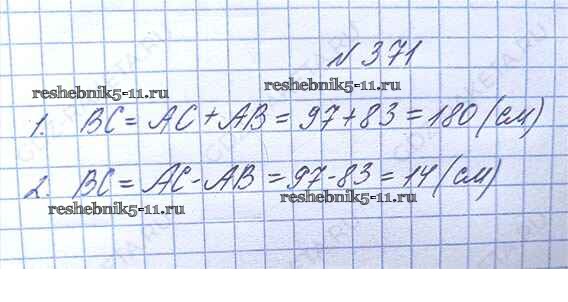 № 371
reshebnik5-11.ru
reshebnik5-11.ru
1. BC = AC + AB = 97 + 83 = 180 (см)
2. BC = AC - AB = 97 - 83 = 14 (см)
reshebnik5-11.ru
reshebnik5-11.ru